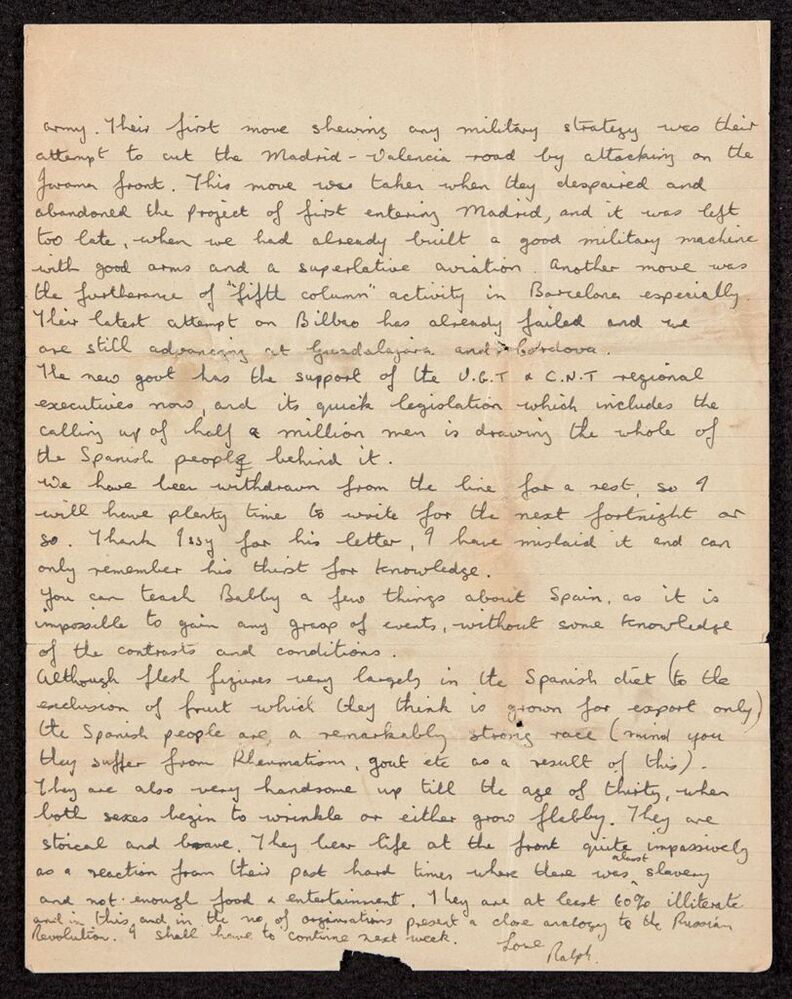 army. Their first move shewing any military strategy was their
attempt to cut the Madrid-Valencia road by attacking on the
Jarama front. This move was taken when they despaired and
abandoned the project of first entering Madrid, and it was left
too late, when we had already built a good military machine
with good arms and a superlative aviation. Another move was
the furtherance of "fifth column" activity in Barcelona especially.
Their latest attempt on Bilbao has already failed and we
are still advancing at Guadalajara and Cordova.
The new govt has the support of the U.G.T & C.N.T regional
executives now, and its quick legislation which includes the
calling up of half a million men is drawing the whole of
the Spanish people behind it.
We have been withdrawn from the line for a rest, so I
will have plenty time to write for the next fortnight or
so. Thank Issy for his letter, I have mislaid it and can
only remember his thirst for knowledge.
You can teach Babby a few things about Spain, as it is
impossible to gain any grasp of events, without some knowledge
of the contrasts and conditions.
Although flesh figures very largely in the Spanish diet (to the
exclusion of fruit which they think is grown for export only)
the Spanish people are a remarkably strong race (mind you
they suffer from Rheumatism, gout etc as a result of this).
They are also very handsome up till the age of thirty, when
both sexes begin to wrinkle or either grow flabby. They are
stoical and brave. They bear life at the front quite impassively
as a reaction from their past hard times where there was almost slavery
and not enough food & entertainment. They are at least 60% illiterate
and in this, and in the no. of organisations present a close analogy to the Russian
Revolution. I shall have to continue next week. Love
Ralph.